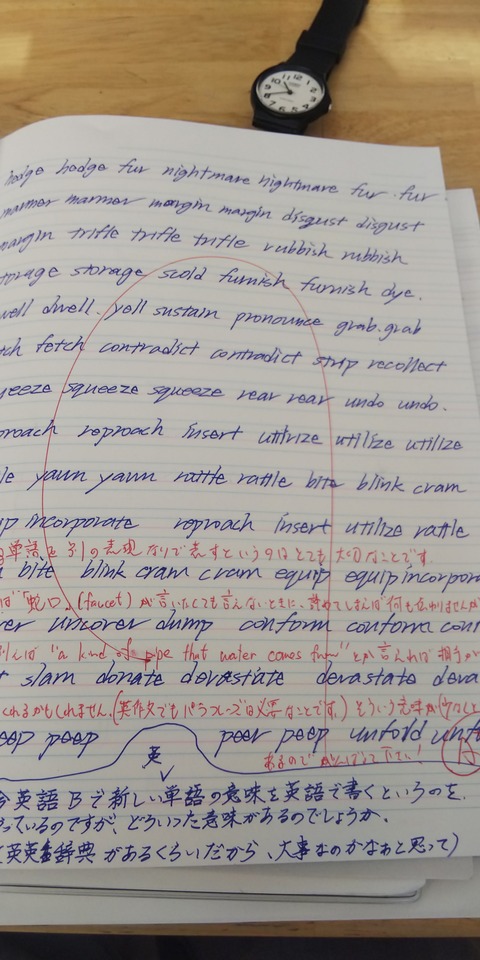 hodge hodge fur nightmare nightmare fur fur
manner manner margin margin disgust disgust
margin trifle trifle trifle rubbish rubbish
torage storage scold furnish furnish dye.
well dwell. yell sustain pronounce grab. grab
tch fetch contradict contradict strip recollect
ueeze squeeze squeeze rear rear undo undo.
proach reproach insert utilize utilize utilize
le yawn yawn rattle rattle bite blink cram
ip incorporate reproach insert utilize rattle
単語を別の表現なりで表すというのはとても大切なことです。
bite blink cram cram equip equip incorpor
ば「蛇口」(faucet)が言いたくても言えないときに、諦めてしまえば何も
ver uncover dump conform conform con
"a kind of pipe that water comes from"とか言えれば相手が
t slam donate devastate devastate deva
くれるかもしれません。(英作文でもパラフレーズは必要なことです。)そういう意味
eep peep peer peep unfold unfo
あるのでがんばって下さい!
英
今英語Bで新しい単語の意味を英語で書くというのを、
っているのですが、どういった意味があるのでしょうか。
(英英辞典があるくらいだから、大事なのかなぁと思って)